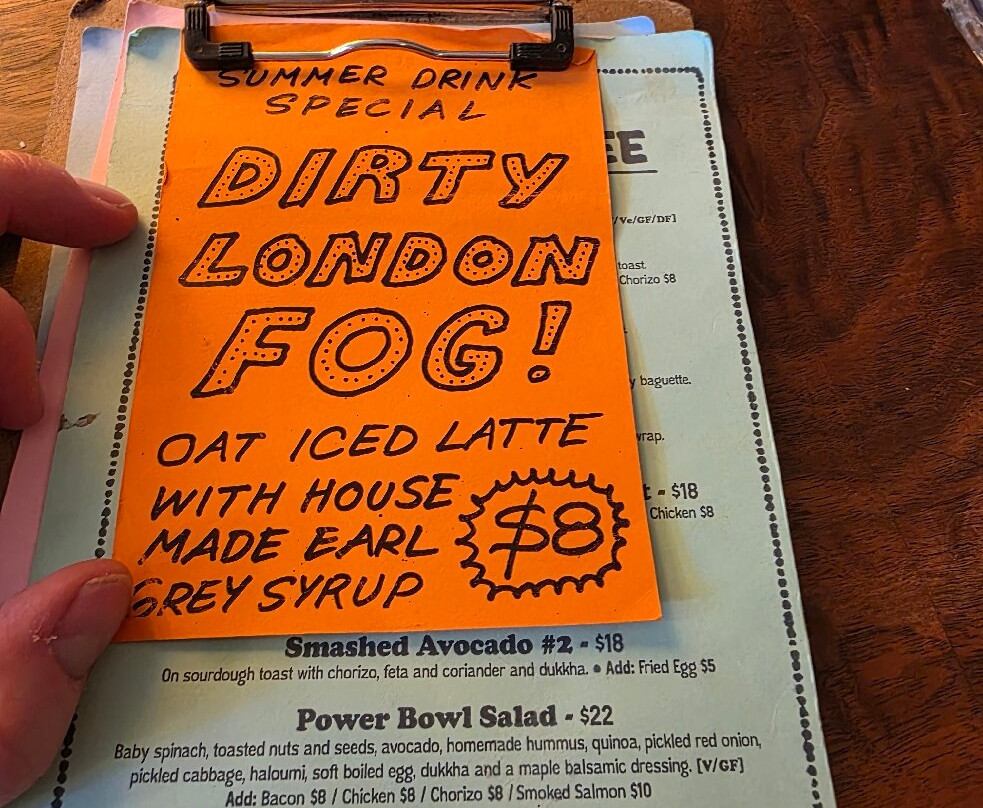 SUMMER DRINK
SPECIAL
DIRTY
LONDON
FOG!
OAT ICED LATTE
WITH HOUSE
MADE EARL
GREY SYRUP
$8
EE
/Ve/GF/DF]
toast
Chorizo $8
y baguette.
wrap.
t - $18
Chicken $8
Smashed Avocado #2 - $18
On sourdough toast with chorizo, feta and coriander and dukkha. • Add: Fried Egg $5
Power Bowl Salad - $22
Baby spinach, toasted nuts and seeds, avocado, homemade hummus, quinoa, pickled red onion,
pickled cabbage, haloumi, soft boiled egg, dukkha and a maple balsamic dressing. [V/GF]
Add: Bacon $8 / Chicken $8 / Chorizo $8 / Smoked Salmon $10